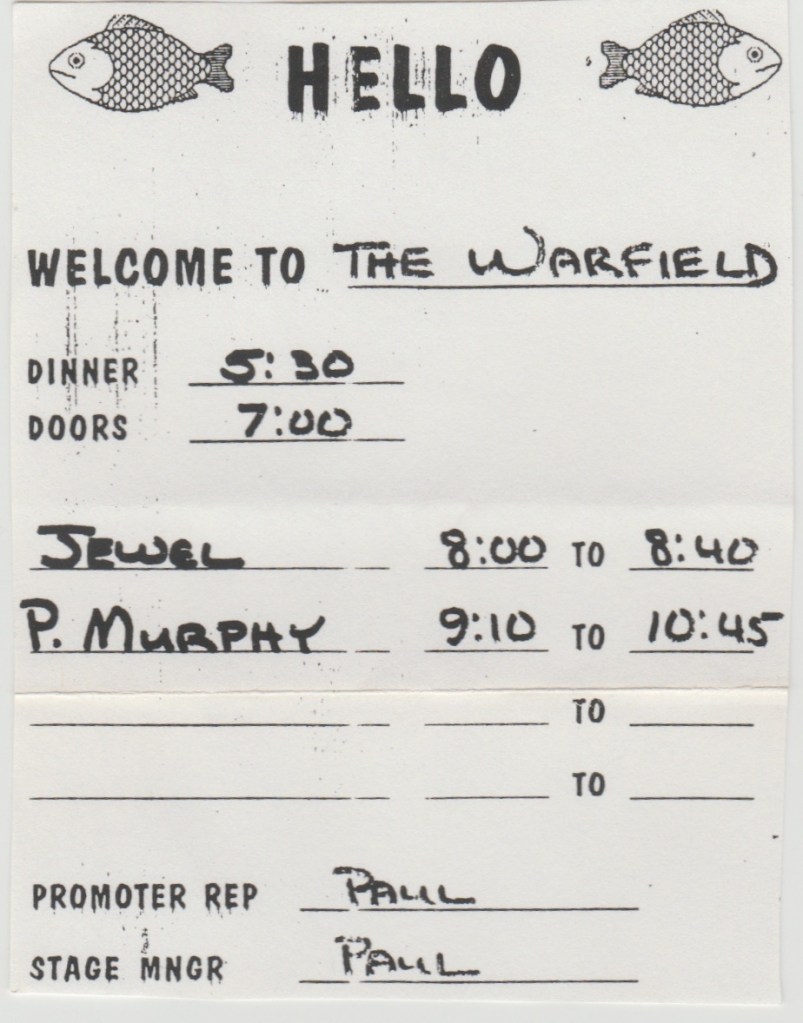 HELLO
WELCOME TO THE WARFIELD
DINNER 5:30
DOORS 7:00
JEWEL 8:00 TO 8:40
P. MURPHY 9:10 TO 10:45
TO
TO
PROMOTER REP PAUL
STAGE MNGR PAUL